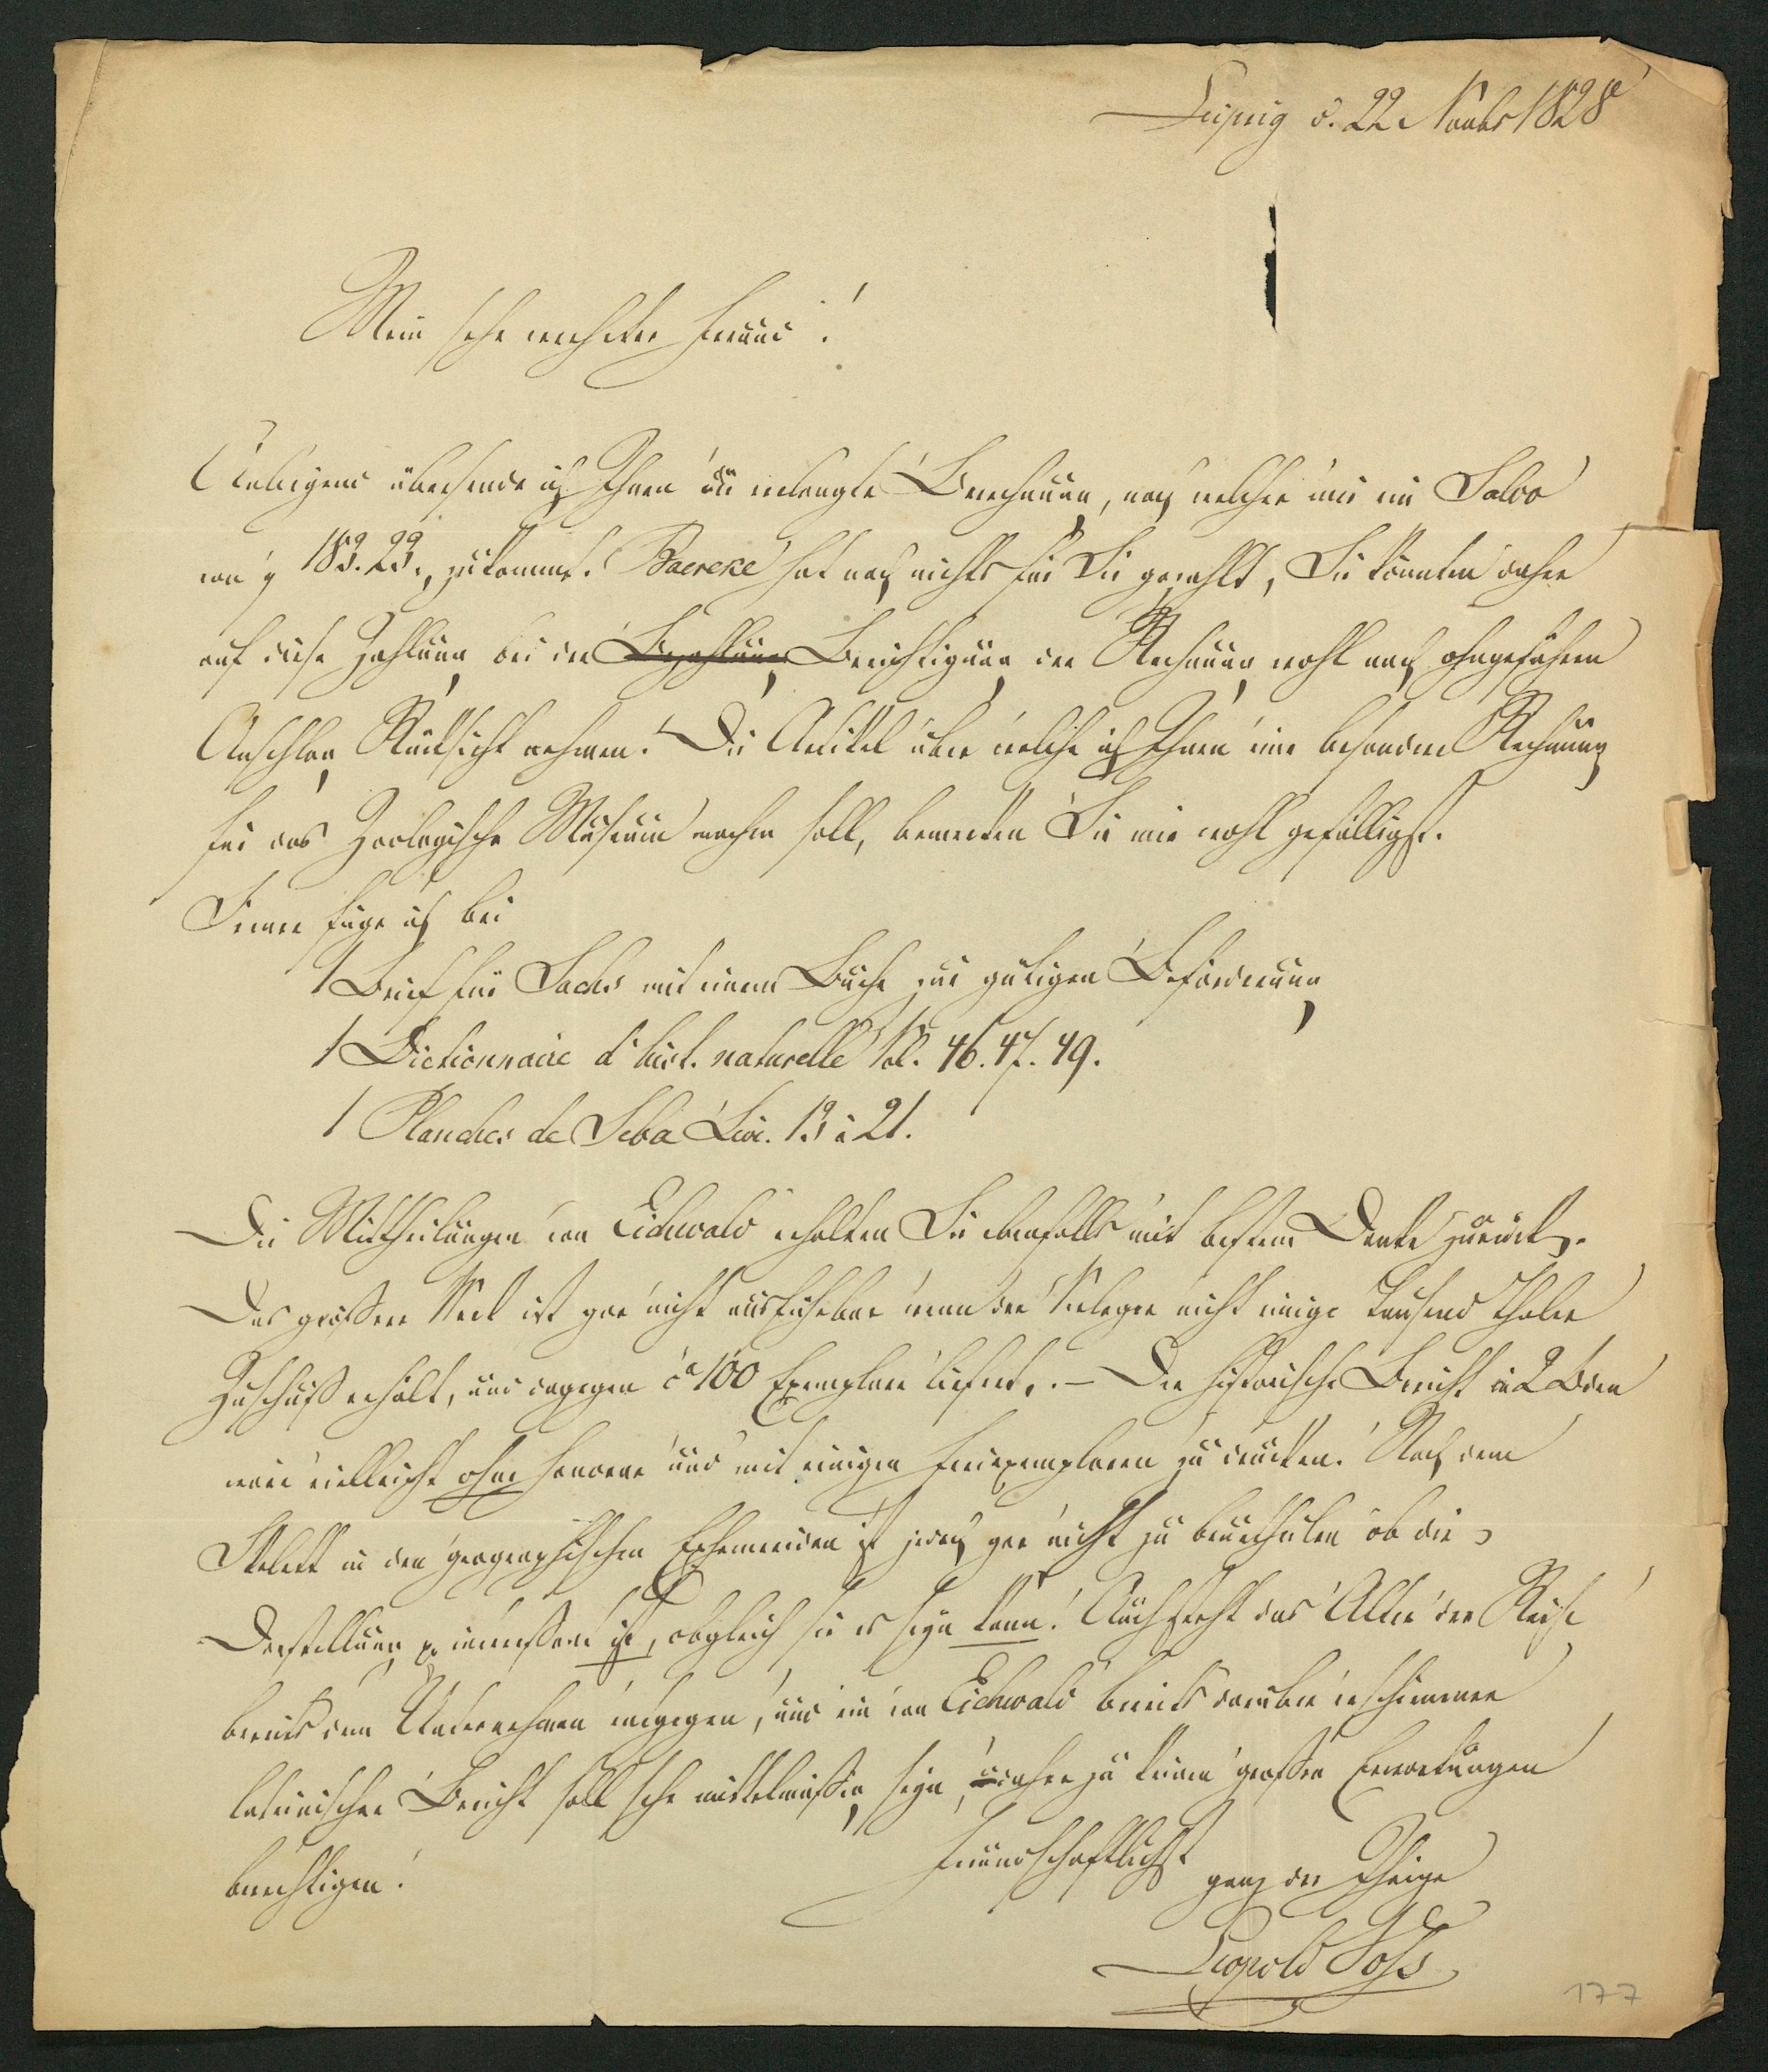 Leipzig d. 22 Novbr 1828
Mein sehr verehrter Freund!
übersende ich Ihnen die verlangte Berechnung, nach welcher mir ein Saldo
von 183. 23. zukommt. Baereke hat noch nichts für Sie gezahlt, Sie könnten daher
auf diese Zahlung bei der Bezahlung Berichtigung der Rechnung wohl nach ohngefährem
Anschlag Rücksicht nehmen. Die Artikel über welche ich Ihnen eine besondere Rechnung
für das Zoologische Museum machen soll, bemerken Sie mir wohl gefälligst.
Ferner füge ich bei
1 Brief für Sachs mit einem Buche zur gütigen Beförderung
1 Dictionnaire d'hist. naturelle Vol. 46. 47. 49.
1 Planches de Seba Livr. 13 à 21.
Die Mittheilungen von Eichwald erhalten Sie ebenfalls mit bestem Danke zurück.
Das größere Werk ist gar nicht ausführbar wenn der Verleger nicht einige tausend Thaler
Zuschuß erhält, und dagegen ca 100 Exemplare liefert. – Der historische Bericht in 2 Bden
wäre vielleicht ohne Honorar und mit einigen Freiexemplaren zu drucken. Nach dem
Skelett in den geographischen Ephemeriden ist jedoch gar nicht zu beurtheilen ob die
Darstellung p. interessant ist, obgleich sie es seyn kann. Auch steht das Alter der Reise
bereits dem Unternehmen entgegen, und ein von Eichwald bereits darüber erschienener
lateinischer Bericht soll sehr mittelmäßig seyn, daher zu keinen großen Erwartungen
berechtigen!
Freundschaftlichst
ganz der Ihrige
Leopold Voß
177